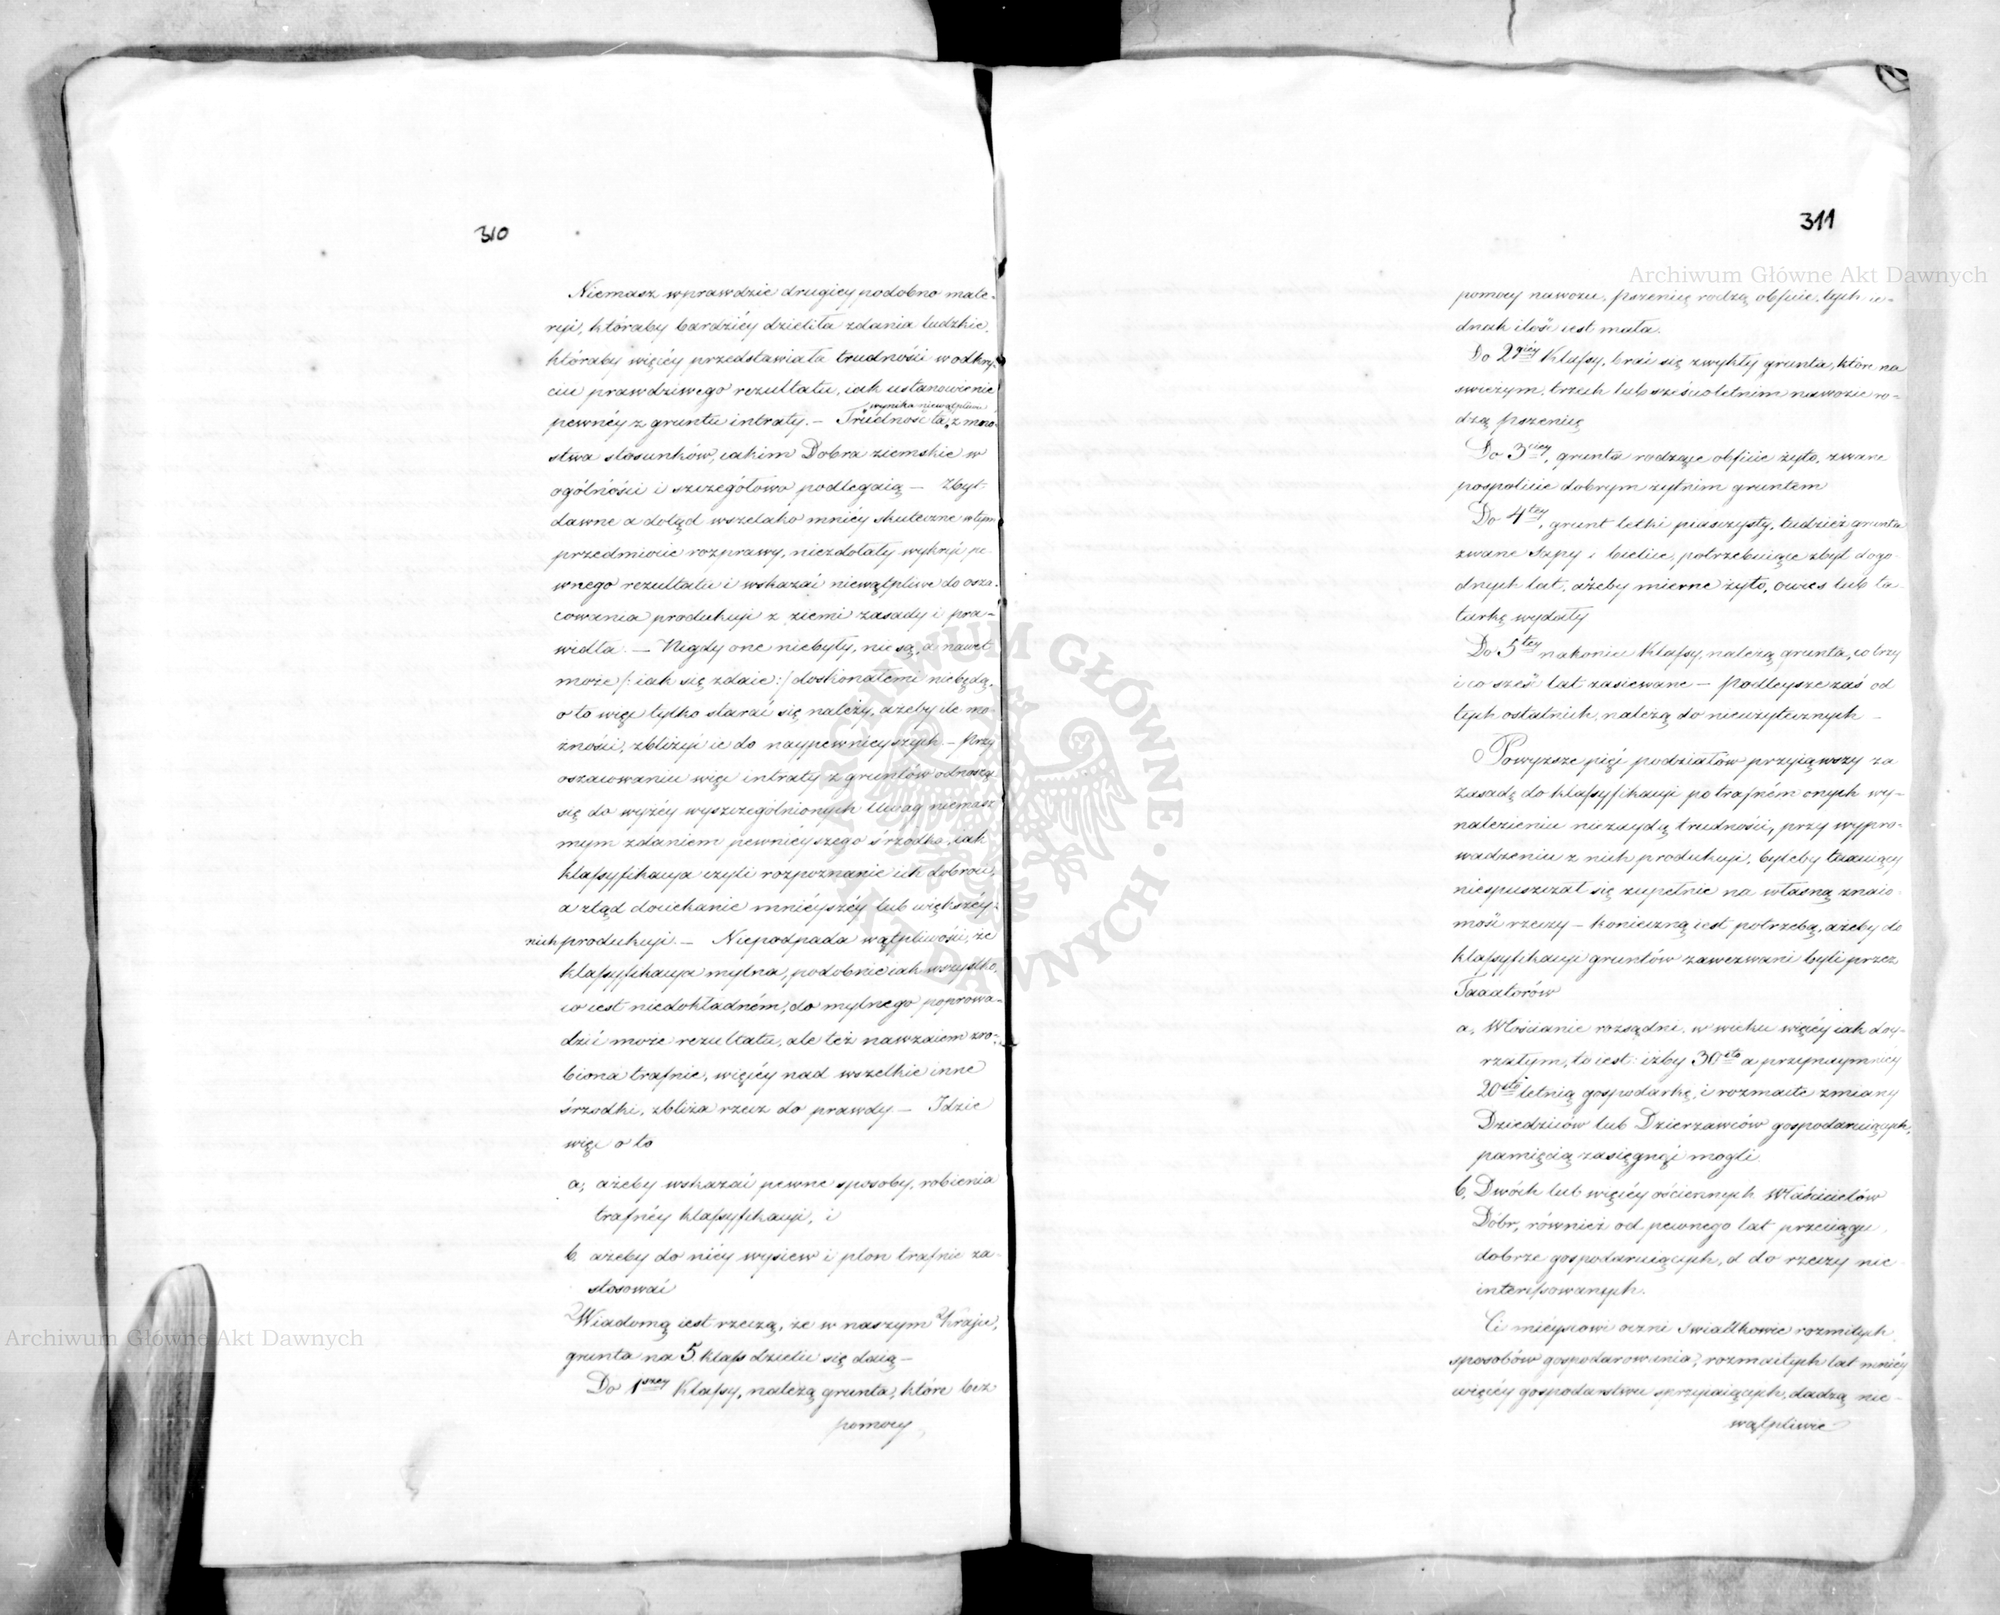 310
Niemasz wprawdzie drugiey podobno mate-
ryi, któraby bardziéy dzieliła zdania ludzkie,
któraby więcéy przedstawiała trudności w odkry-
ciu prawdziwego rezultatu, iak ustanowienie
wynika niewątpliwie
pewnéy z gruntu intraty. — Trudność ta, z mno-
stwa stosunków, iakim Dobra ziemskie w
ogólności i szczegółowo podlegaią — Zbyt
dawne a dotąd wszelako mniéy skuteczne w tym
przedmiocie rozprawy, niezdołały wykryć pe-
wnego rezultatu i wskazać niewątpliwe do osza-
cowania produkcyi z ziemi zasady i pra-
widła. — Nigdy one niebyły, nie są, a nawet
może /: iak się zdaie :/ doskonałemi niebędą,
o to więc tylko starać się należy, ażeby ile mo-
żności, zbliżyć ie do naypewnieyszych — Przy
oszacowaniu więc intraty z gruntów odnosząc
się do wyżéy wyszczególnionych Uwag niemasz
mym zdaniem pewniéyszego śrzodka, iak
klassyfikacya czyli rozpoznanie ich dobroci,
a ztąd dociekanie mniéyszéy lub większéy
nich produkcyi. — Niepodpada wątpliwości, że
klassyfikacya mylna, podobnie iak wszystko,
co iest niedokładném, do mylnego poprowa-
dzić może rezultatu, ale też nawzaiem zro-
biona trafnie, więcéy nad wszelkie inne
śrzodki, zbliża rzecz do prawdy — Idzie
więc o to
a, ażeby wskazać pewne sposoby, robienia
trafnéy klassyfikacyi, i
b. ażeby do niéy wysiew i plon trafnie za-
stosować
Wiadomą iest rzeczą, że w naszym Kraiu,
grunta na 5 klass dzielić się daią —
Do 1szey Klassy, należą grunta, które bez
pomocy
311
pomocy nawozu, pszenicę rodzą obficie, tych ie-
dnak ilość iest mała.
Do 2giéy Klassy, brać się zwykły grunta, które na
swieżym, trzech lub sześcioletnim nawozie ro-
dzą pszenicę
Do 3ciey, grunta rodzące obficie żyto, zwane
pospolicie dobrym żytnim gruntem
Do 4tey, grunt letki piasczysty, tudzież grunta
zwane Sapy i bielice, potrzebuiące zbyt dogo-
dnych lat, ażeby mierne żyto, owies lub ta-
tarkę wydały
Do 5tey nakoniec Klassy, należą grunta, co trzy
i co sześć lat zasiewane — Podleysze zaś od
tych ostatnich, należą do nieużytecznych —
Powyższe pięć podziałów przyiąwszy za
zasadę do klassyfikacyi po trafném onych wy-
nalezieniu niezaydą trudności, przy wypro-
wadzeniu z nich produkcyi, byleby taxuiący
niespuszczał się zupełnie na własną znaio-
mość rzeczy — konieczną iest potrzebą, ażeby do
klassyfikacyi gruntów zawezwani byli przez
Taxatorów
a, Włościanie rozsądni, w wieku więcéy iak doy-
rzałym, to iest: iżby 30sto a przynaymniéy
20sto letnią gospodarkę, i rozmaite zmiany
Dziedziców lub Dzierżawców gospodaruiących,
pamięcią zasięgnąć mogli.
b, Dwóch lub więcéy ościennych Właścicielów
Dóbr, również od pewnego lat przeciągu,
dobrze gospodaruiących, a do rzeczy nie
interessowanych.
Ci mieyscowi oczni świadkowie rozmitych
sposobów gospodarowania, rozmaitych lat mniéy
więcéy gospodarstwu sprzyiaiących, dadzą nie-
wątpliwie
Archiwum Główne Akt Dawnych
Archiwum Główne Akt Dawnych
ARCHIWUM GŁÓWNE AKT DAWNYCH